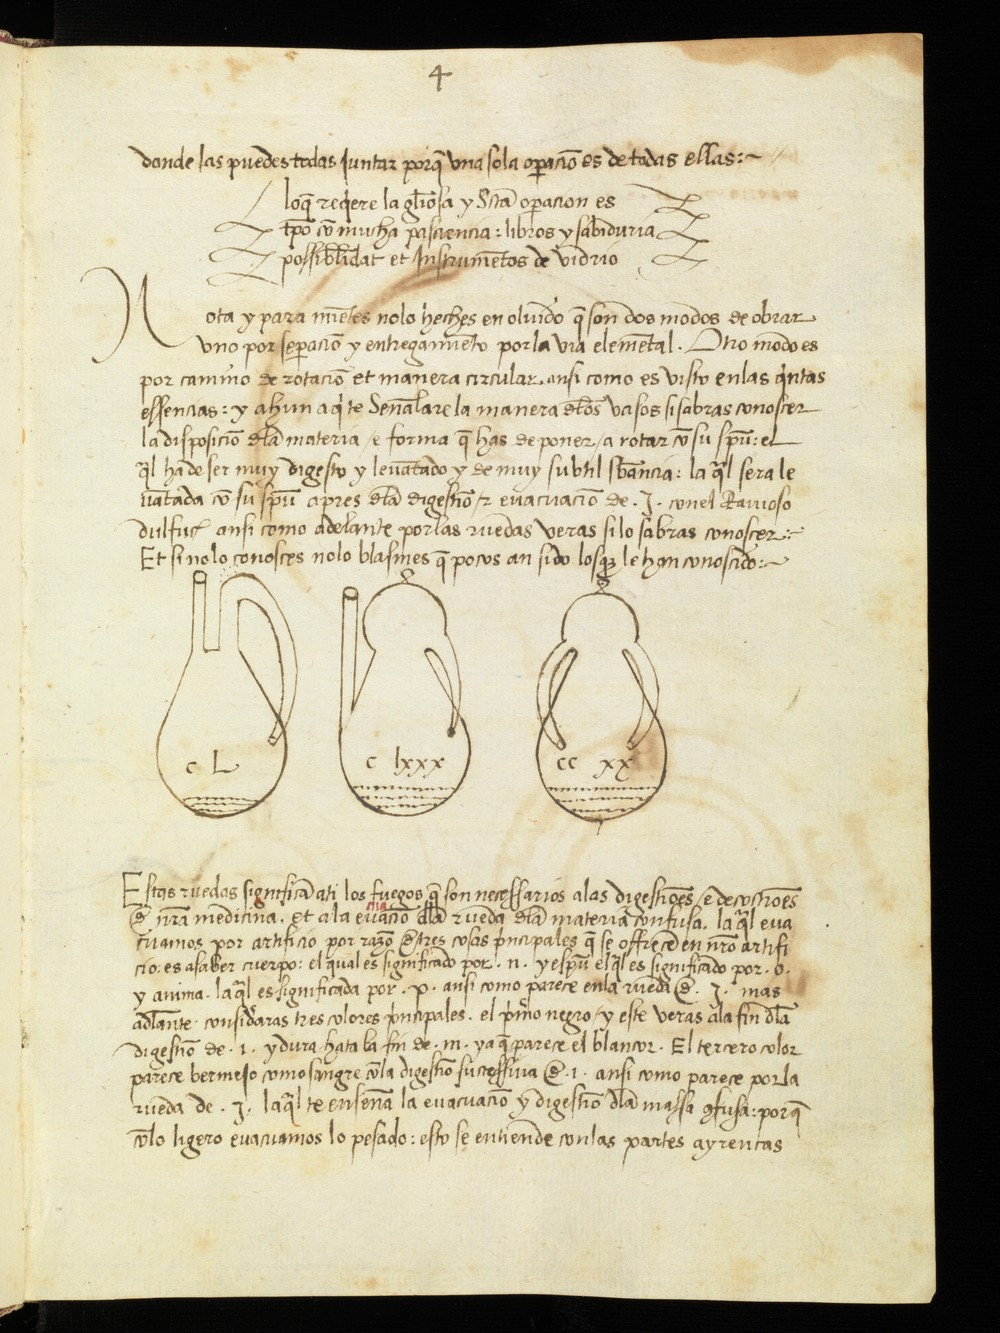 4
donde las puedes todas Juntar porq̃ vna sola oꝑacio͂ es de todas ellas:~
loq̃ reqere la gl̃iosa y Sc̃ta oꝑacion es
tp̃o cõ mucha pasciencia: libros y sabiduria
possibl̃idat et Instrum̃etos de vidrio
Nota y para mie͂tes nolo heches en oluido q̃ son dos modos de obrar
vno por seꝑacio͂ y entregamie͂to por la via eleme͂tal. Otro modo es
por camino de rotacio͂ et manera circular. ansi como es visto enlas qntas
essencias: y ahun aqi te Señalare la manera dl̃os vasos si sabras conoscer
la disposicio͂ dl̃a materia / e forma q̃ has de poner / a rotar cõ su spũ: el
q̃l ha de ser muy digesto y leuãtado y de muy subtil sb̃ancia: la q̃l sera le
uãtada cõ su spũ apres dl̃a digestio͂ / z euacuacio͂ de .J. con el
dulfur ansi como adelante por las ruedas veras si lo sabras conoscer:~
Et si nolo conosces nolo blasmes q̃ pocos an sido los q̃ le han conoscido:~
c L
c lxxx
cc xx
Estas ruedas significã ati los fuegos q̃ son necessarios a las digestio͂es / e decoctio͂es
đ nr̃a medicina. et a la euacio͂ dl̃a rueda dl̃a materia confusa. la q̃l eua
cua
cuamos por artificio por razo͂ đ tres cosas p̃ncipales q̃ se offrece͂ en nr̃o artifi
cio: es asaber cuerpo: el qual es significado por .n. y espũ el q̃l es significado por .o.
y anima. la q̃l es significada por .p. ansi como parece en la rueda đ .J. mas
adl̃ante consid̃aras tres colores p̃ncipales. el p̃mo negro / y este veras a la fin dl̃a
digestio͂ de .i. y dura hata la fin de .m. ya q̃ parece el blancor. El tercero color
parece bermejo como sangre cõ la digestio͂ sucessiua đ .i. ansi como parece por la
rueda de .J. la q̃l te enseña la euacuacio͂ y digestio͂ dl̃a massa ꝯfusa: porq̃
cõ lo ligero euacuamos lo pesado: esto se entiende con las partes ayrentas